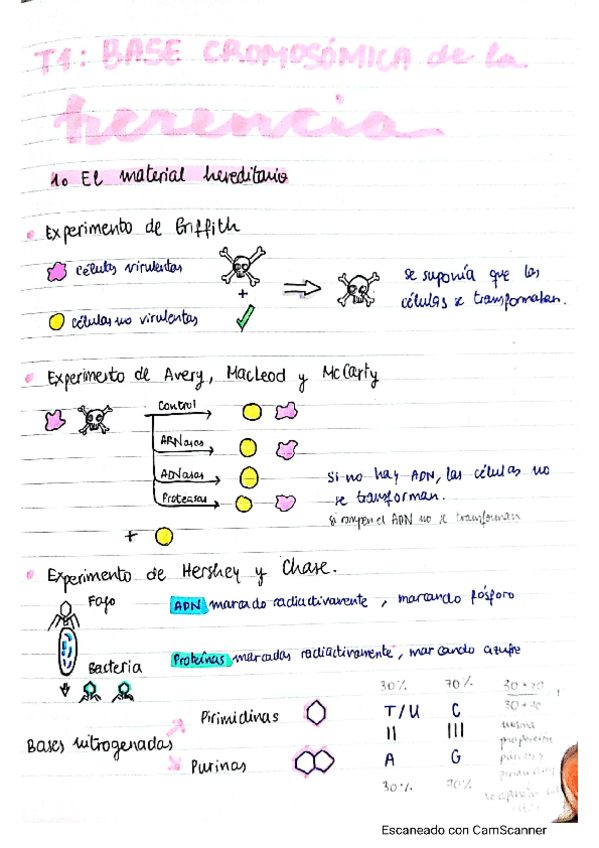 T1: BASE CROMOSÓMICA de la
herencia
1. El material hereditario
Experimento de Griffith
células virulentas
+
células no virulentas
se suponía que las
células se transformaban.
Experimento de Avery, MacLeod y McCarty
Control
ARNasas
ADNasas
Proteasas
+
si no hay ADN, las células no
se transforman.
si rompen el ADN no se transforman
Experimento de Hershey y Chase.
Fago
ADN marcado radiactivamente, marcando fósforo
Bacteria
Proteínas marcadas radiactivamente, marcando azufre
Bases nitrogenadas
Pirimidinas
Purinas
30% 70%
T/U C
A G
30% 70%
30+20
misma
proporción
Escaneado con CamScanner